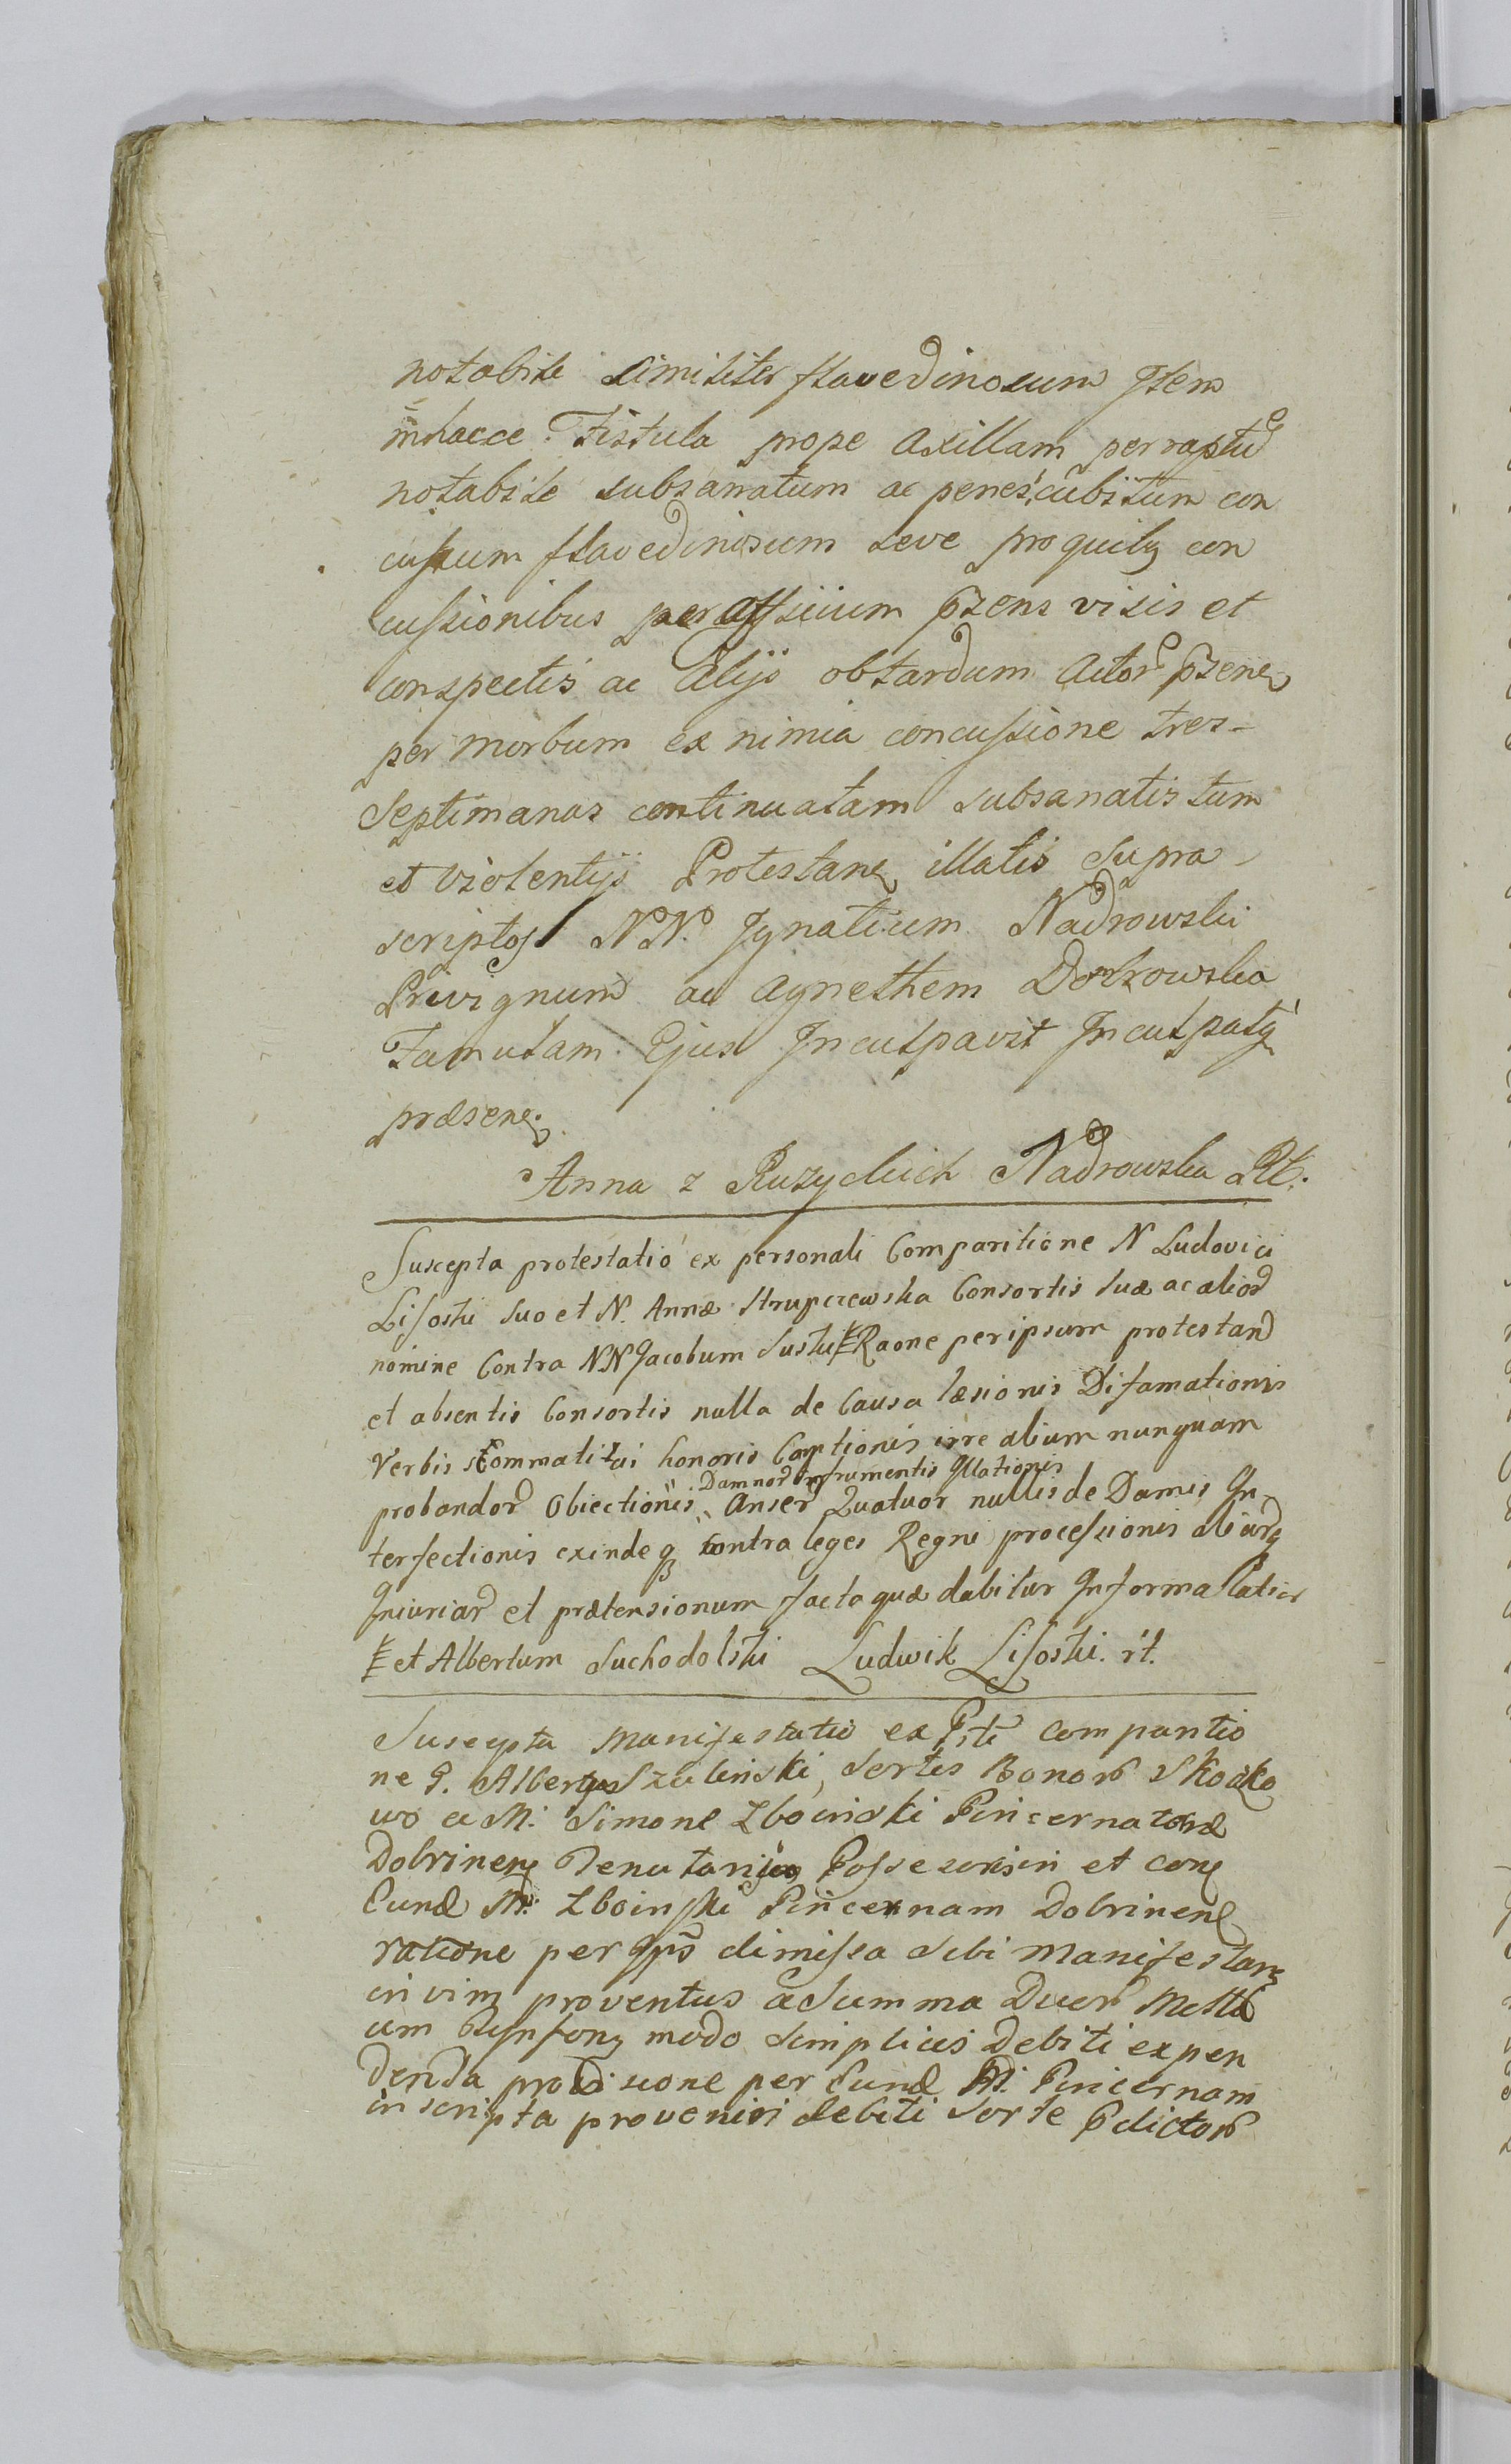 notabile similiter flavedinosum Item
in hacce Fistula prope axillam per raptu
notabile subsanatum ac penes cubitum con
cussum flavedinosum leve pro quibq con
cussionibus per officium przens visis et
conspectis ac alijs ob tardum Actor przenẽ
per morbum ex nimia concussione tres
Septimanas continuatam subsanatis tum
et violentijs Protestanẽ illatis supra
scriptos NN. Ignatium Nadrowski
Privignum ac Agnethem
Famulam Ejus Inculpavit Inculpatq
præsenẽ.
Anna z Ruzyckich Nadrowska Rt.
Suscepta protestatio ex personali Comparitione N Ludovici
Lisoski suo et N. Annæ Strupczewska Consortis suæ ac alior
nomine Contra NN Jacobum Suski Raone per ipsum protestand
et absentis Consortis nulla de Causa læsionis Difamationis
Verbis honoris Captionis irre alium nunquam
Damnor Infrumentis Illationis
probandor Obiectionis Anser Quatuor nullis de Damis In-
terfectionis exinde q contra leges Regni processionis aliarq
Iniuriar et prætensionum facta quæ dabitur Informa latior
et Albertum Suchodolski Ludwik Lisoski. rt.
Suscepta Manifestatio ex Psti comparitio
ne G. Albertus Szulinski, Sortis Bonor
wo a M. Simone Zboinski Pincernatore
Dobrinenẽ Possessoris et conẽ
Eund M. Zboinski Pincernam Dobrinenẽ
ratione per Ips dimissa sibi Manifestanẽ
in vim proventus a Summa Ducr Mille
um modo simplicis Debiti expen
denda per Eund M. Pincernam
inscripta provenin debiti Sorte pdictor